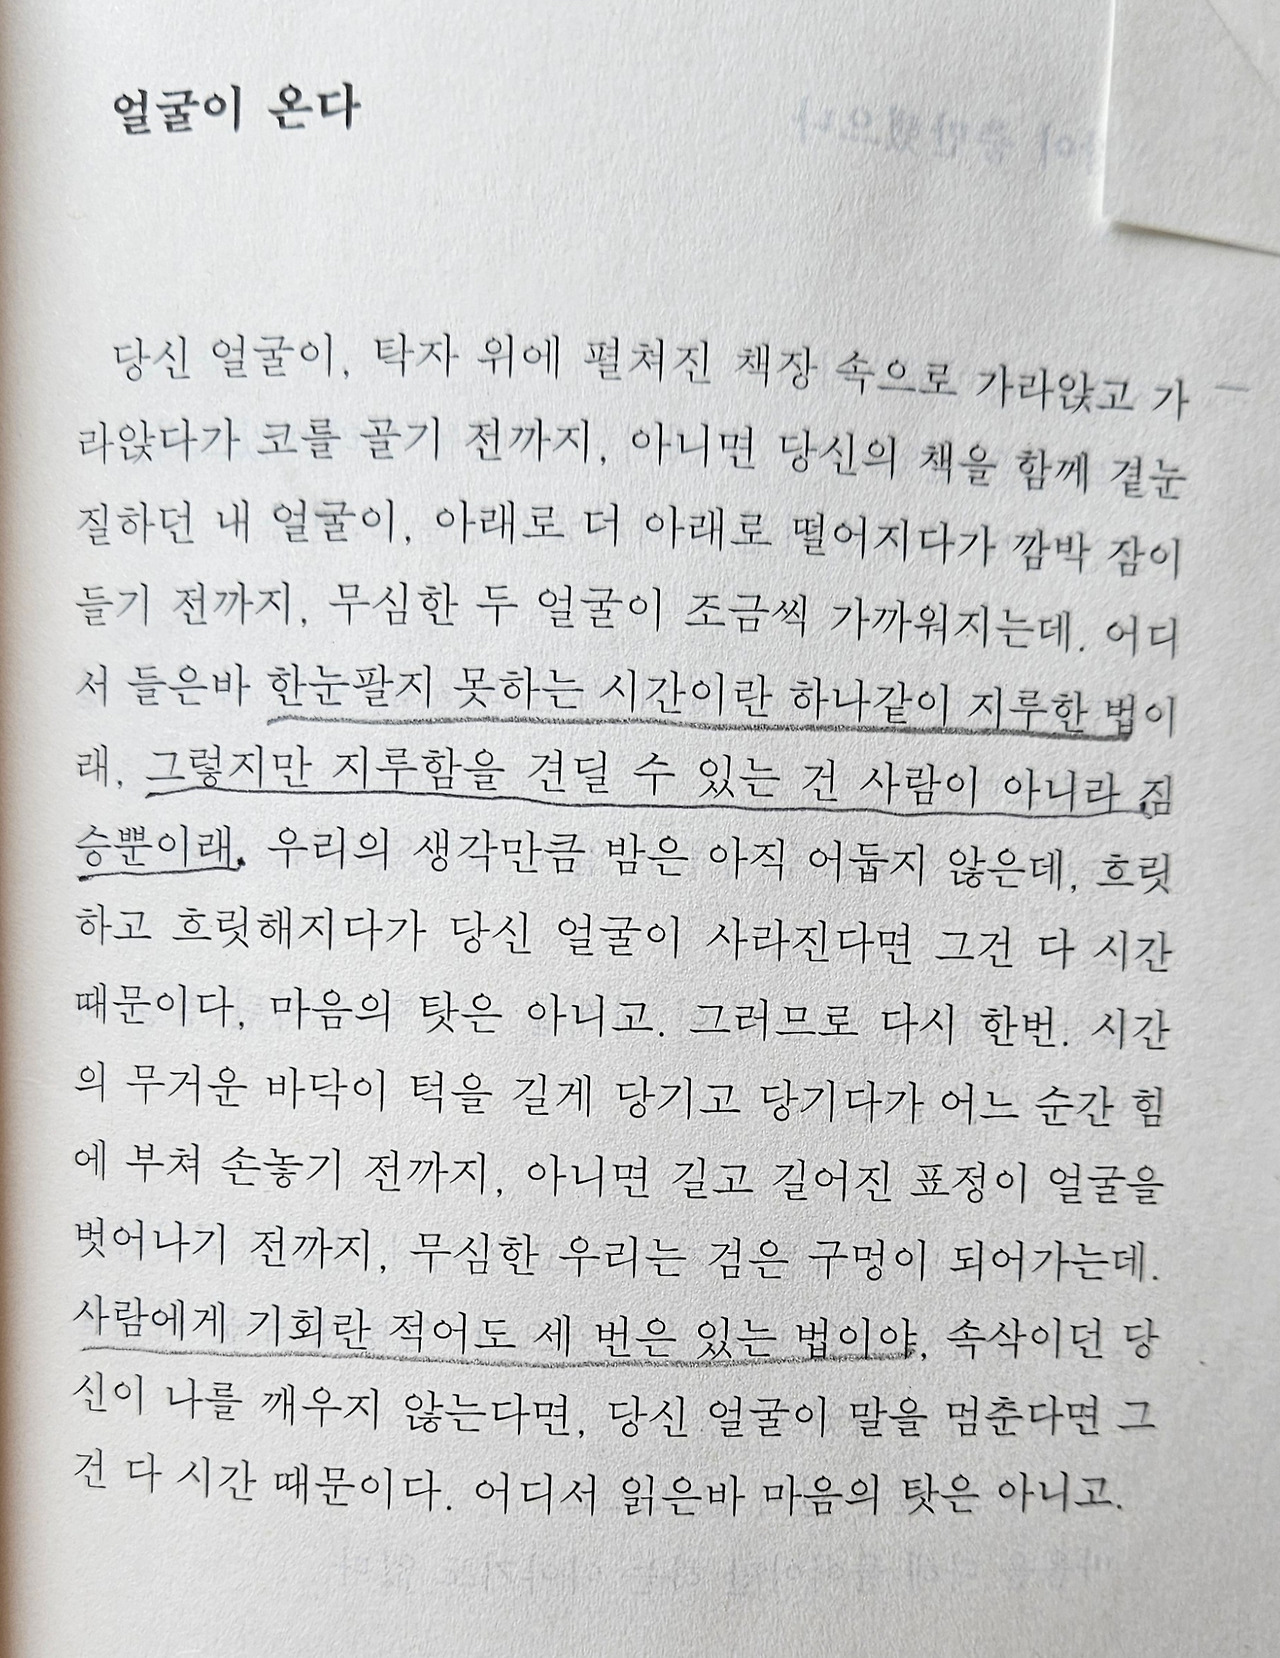 얼굴이 온다
당신 얼굴이, 탁자 위에 펼쳐진 책장 속으로 가라앉고 가
라앉다가 코를 골기 전까지, 아니면 당신의 책을 함께 곁눈
질하던 내 얼굴이, 아래로 더 아래로 떨어지다가 깜박 잠이
들기 전까지, 무심한 두 얼굴이 조금씩 가까워지는데. 어디
서 들은바 한눈팔지 못하는 시간이란 하나같이 지루한 법이
래, 그렇지만 지루함을 견딜 수 있는 건 사람이 아니라 짐
승뿐이래. 우리의 생각만큼 밤은 아직 어둡지 않은데, 흐릿
하고 흐릿해지다가 당신 얼굴이 사라진다면 그건 다 시간
때문이다, 마음의 탓은 아니고. 그러므로 다시 한번. 시간
의 무거운 바닥이 턱을 길게 당기고 당기다가 어느 순간 힘
에 부쳐 손놓기 전까지, 아니면 길고 길어진 표정이 얼굴을
벗어나기 전까지, 무심한 우리는 검은 구멍이 되어가는데.
사람에게 기회란 적어도 세 번은 있는 법이야, 속삭이던 당
신이 나를 깨우지 않는다면, 당신 얼굴이 말을 멈춘다면 그
건 다 시간 때문이다. 어디서 읽은바 마음의 탓은 아니고.